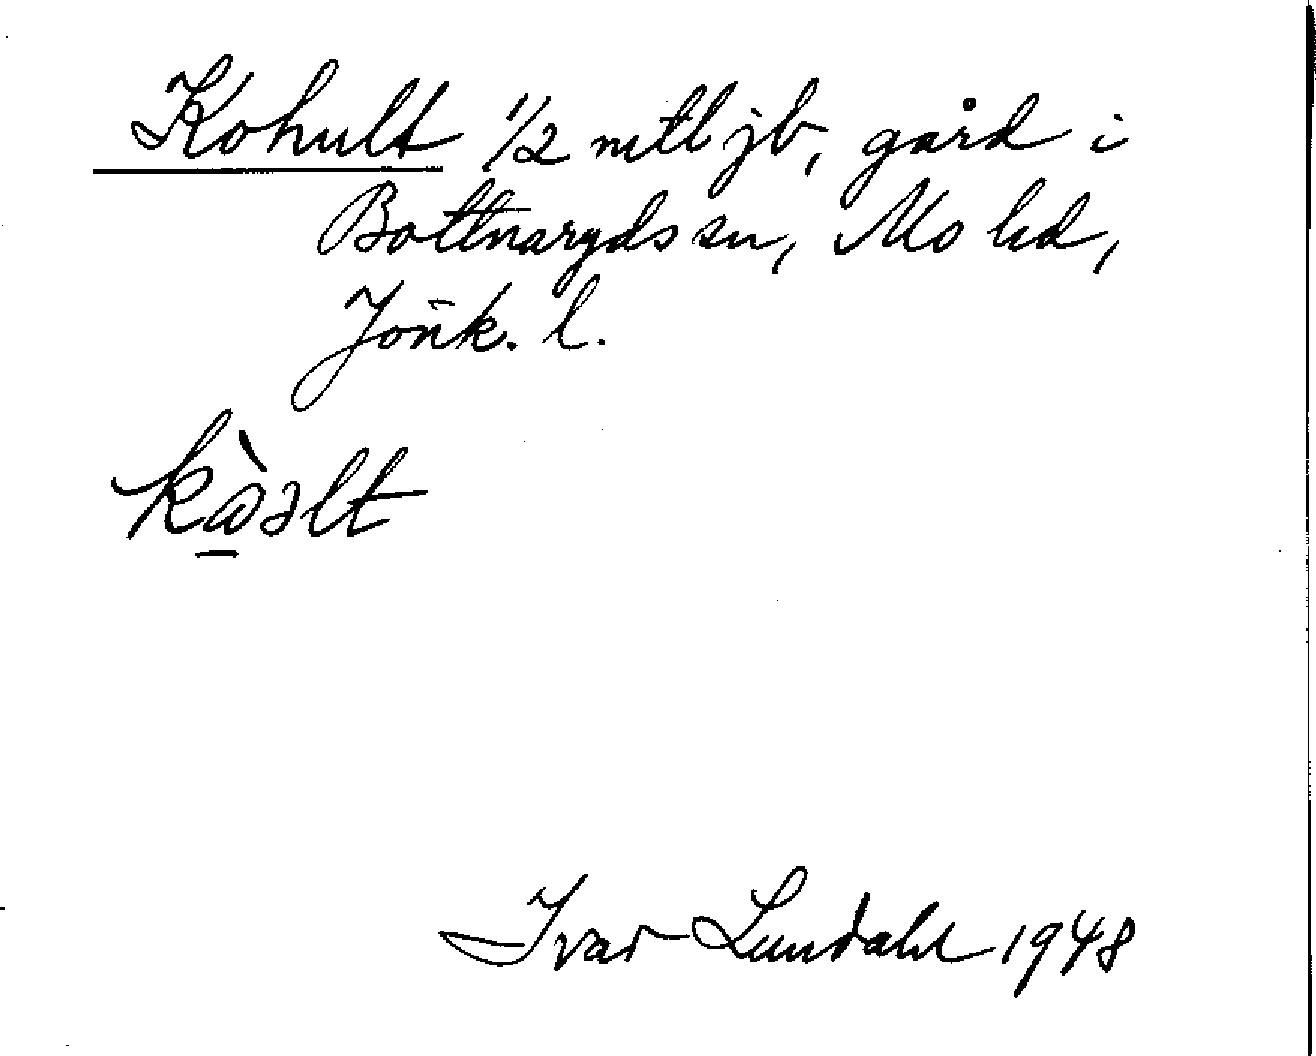 Kohult 1/2 mtl jb, gård i
Bottnaryds sn, Mo hd,
Jönk. l.
Ivar Lundahl 1948